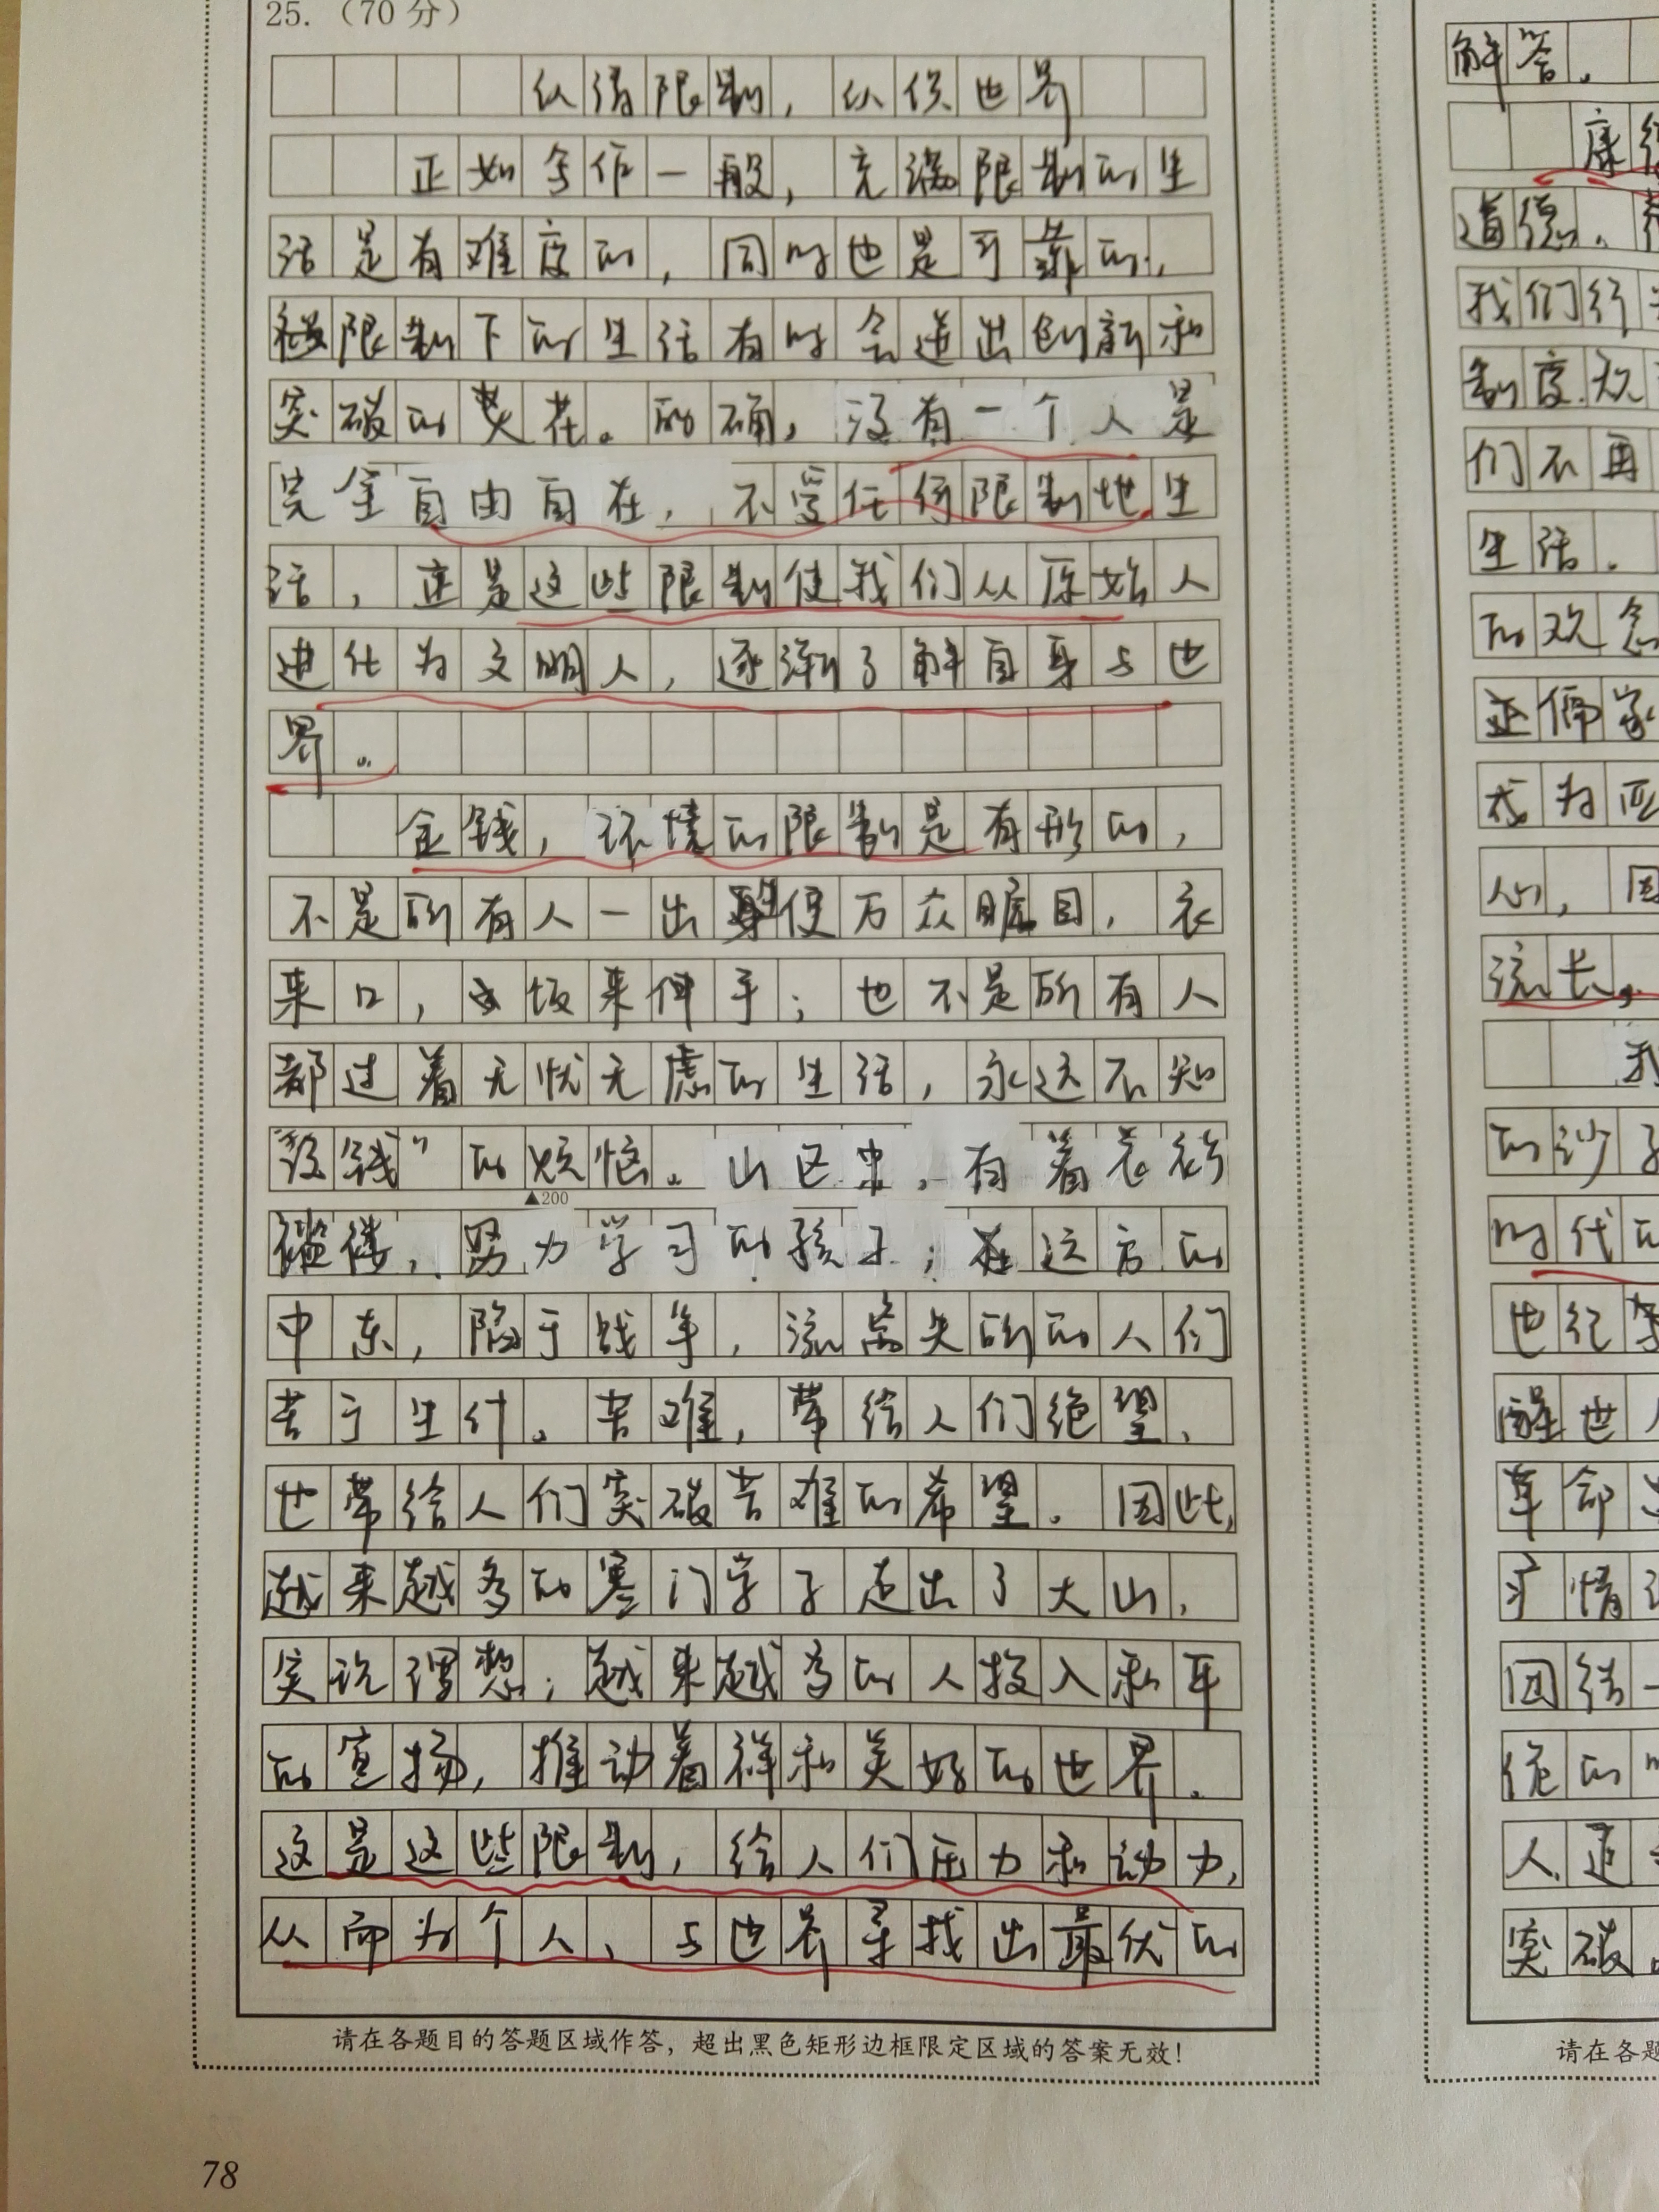 25.（70分）
限制，世界
正如写作一般，充满限制的生
活是有难度的，同时也是可靠的，
被限制下的生活有时会迸出创新和
突破的火花。的确，没有一个人是
完全自由自在，不受任何限制地生
活，正是这些限制使我们从原始人
进化为文明人，逐渐了解自身与世
界。
金钱，环境的限制是有形的，
不是所有人一出身便万众瞩目，衣
来口，饭来伸手；也不是所有人
都过着无忧无虑的生活，永远不知
“没钱”的烦恼。山区中，有着衣衫
褴褛，努力学习的孩子；在远方的
中东，陷于战争，流离失所的人们
苦于生计。苦难，带给人们绝望，
也带给人们突破苦难的希望。因此，
越来越多的寒门学子走出了大山，
实现理想；越来越多的人投入和平
的宣扬，推动着祥和美好的世界。
这是这些限制，给人们压力和动力，
从而为个人、与世界寻找出最优的
请在各题目的答题区域作答，超出黑色矩形边框限定区域的答案无效！
78
解答。
康
道德，
我们行
制度、观
们不再
生活。
的观念
正儒家
我为
心，
流长，
我
的沙子
时代的
也纪
醒世人
革命
疗情
团结一
使的
人，追
突破。
请在各题